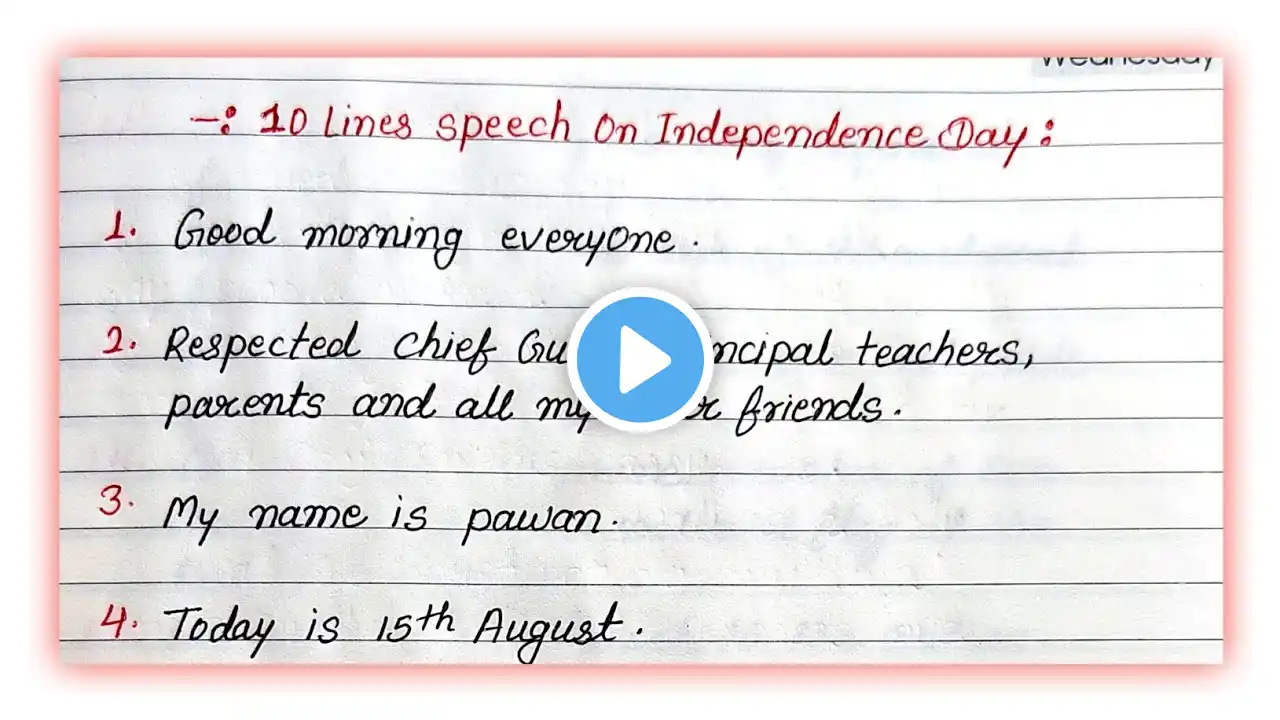 Wednesday
-: 10 Lines speech on Independence Day:
1. Good morning everyone.
2. Respected Chief teachers,
parents and all my friends.
3. My name is pawan.
4. Today is 15th August.